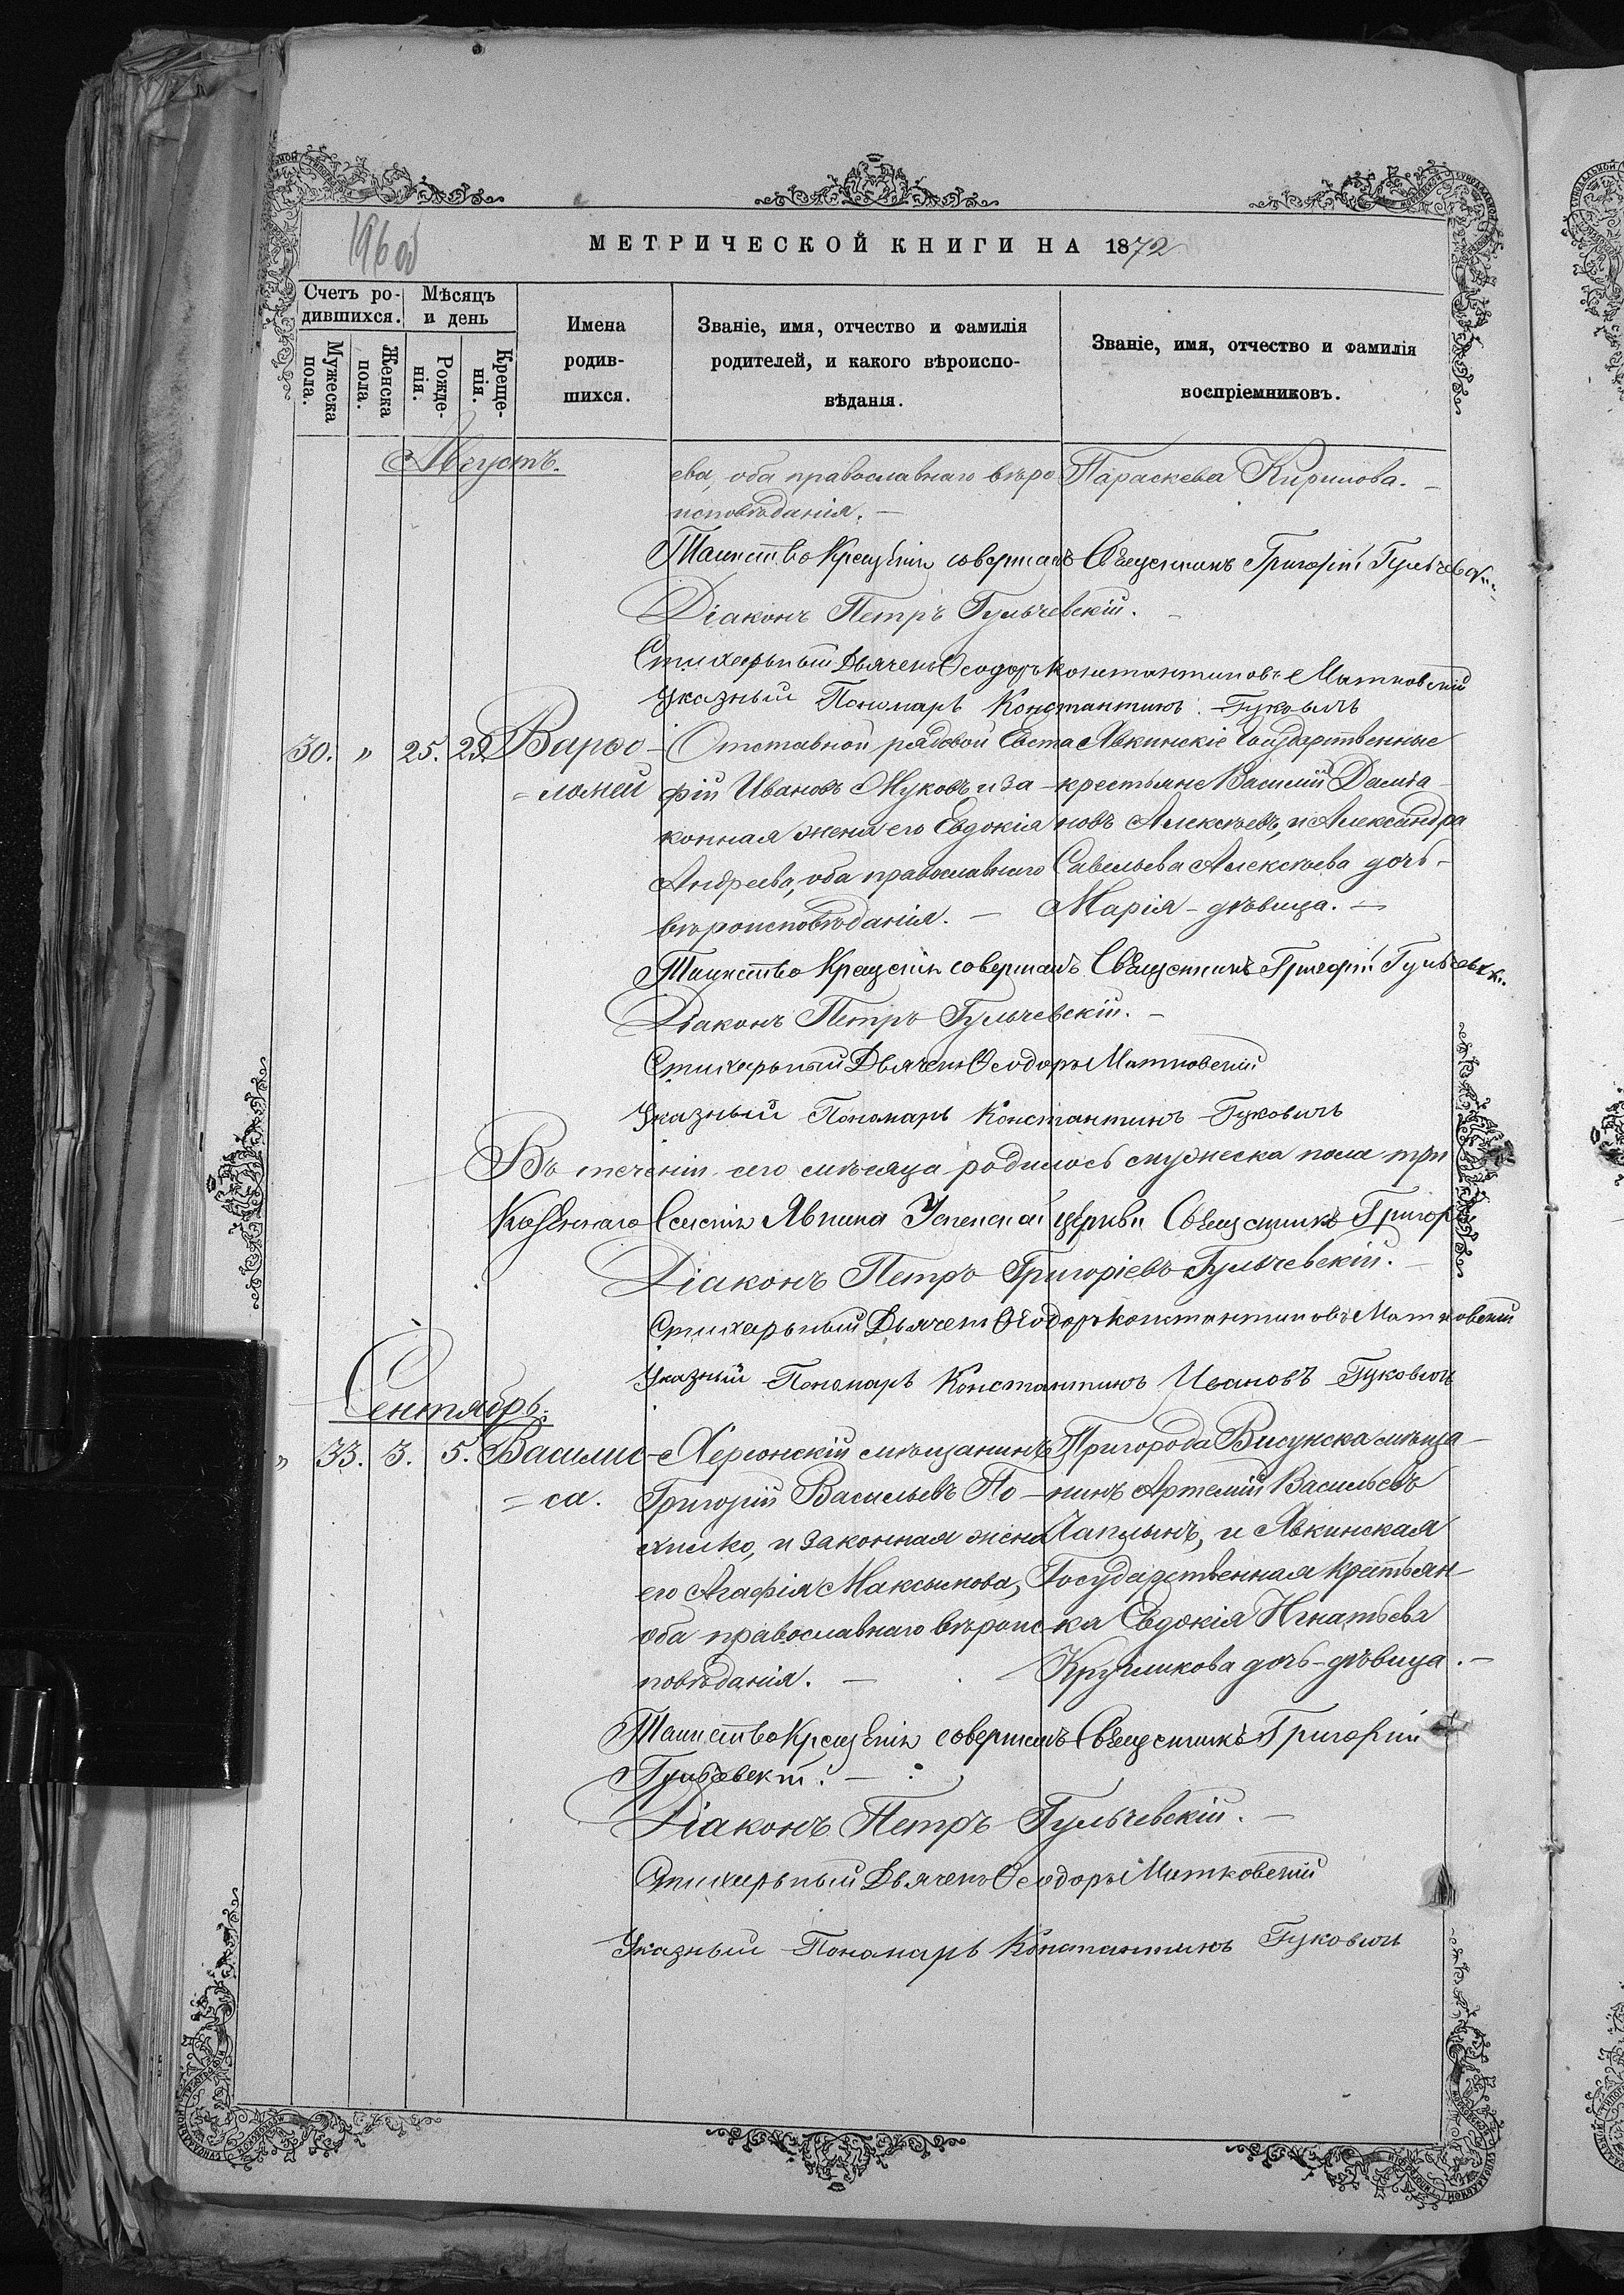 196 об
МЕТРИЧЕСКОЙ КНИГИ НА 1872
Счетъ ро-
дившихся.
Мѣсяцъ
и день
Мужеска
пола.
Женска
пола.
Рожде-
нія.
Креще-
нія.
Имена
родив-
шихся.
Званіе, имя, отчество и фамилія
родителей, и какого вѣроиспо-
вѣданія.
Званіе, имя, отчество и фамилія
воспріемниковъ.
Августъ.
ева, оба православнаго вѣро Параскева Кирилова. –
исповѣданія. –
Таинство Крещенія совершалъ Священникъ Григорій Гульчевскій
Діаконъ Петръ Гульчевскій. –
Стихарный Дьячекъ Ѳеодоръ Константиновъ Матковскій
Указный Пономарь Константинъ Гуковичъ
30. " 25. 29. Варѳо-
=ломей
Отставной рядовой Евста
фій Ивановъ Жуковъ и за-
конная жена его Евдокія
Андреева, оба православнаго
вѣроисповѣданія. –
Явкинскіе Государственные
крестьяне Василій Демья-
новъ Алексѣевъ, и Александра
Савельева Алексѣева дочь-
Марія - дѣвица. –
Таинство Крещенія совершалъ Священникъ Григорій Гульчевскій
Діаконъ Петръ Гульчевскій. –
Стихарный Дьячекъ Ѳеодоръ Матковскій
Указный Пономарь Константинъ Гуковичъ
Въ теченіи сего мѣсяца родилось мужеска пола три
Казеннаго Селенія Явкина Успенской церкви Священникъ Григорій
Діаконъ Петръ Григоріевъ Гульчевскій. –
Стихарный Дьячекъ Ѳеодоръ Константиновъ Матковскій
Указный Пономарь Константинъ Ивановъ Гуковичъ
Сентябрь.
" 33. 3. 5. Василис-
=са.
Херсонскій мѣщанинъ
Григорій Васильевъ По-
хилко, и законная жена
его Агафія Максимова,
оба православнаго вѣроис-
повѣданія. –
Пригорода Висунска мѣща-
нинъ Артемій Васильевъ
Чаплынъ, и Явкинская
Государственная крестьян-
ка Евдокія Игнатьева
Кругликова дочь - дѣвица. –
Таинство Крещенія совершалъ Священникъ Григорій
Гульчевскій. –
Діаконъ Петръ Гульчевскій. –
Стихарный Дьячекъ Ѳеодоръ Матковскій
Указный Пономарь Константинъ Гуковичъ